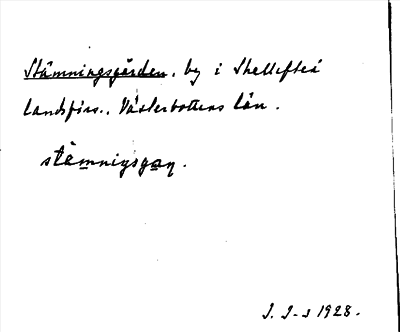 Stämningsgården, by i Skellefteå
landsförs., Västerbottens län.
stämniŋsgaɳ.
J. J-s 1928.